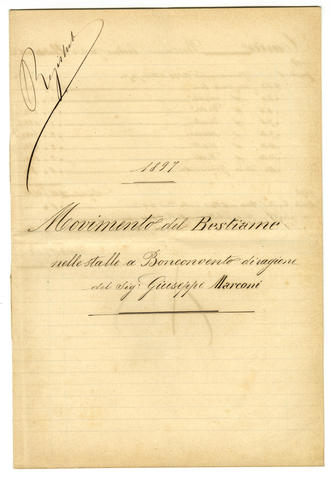 Registrato
1897
Movimento del Bestiame
nelle stalle a Bonconvento di ragione
del Sigr. Giuseppe Marconi